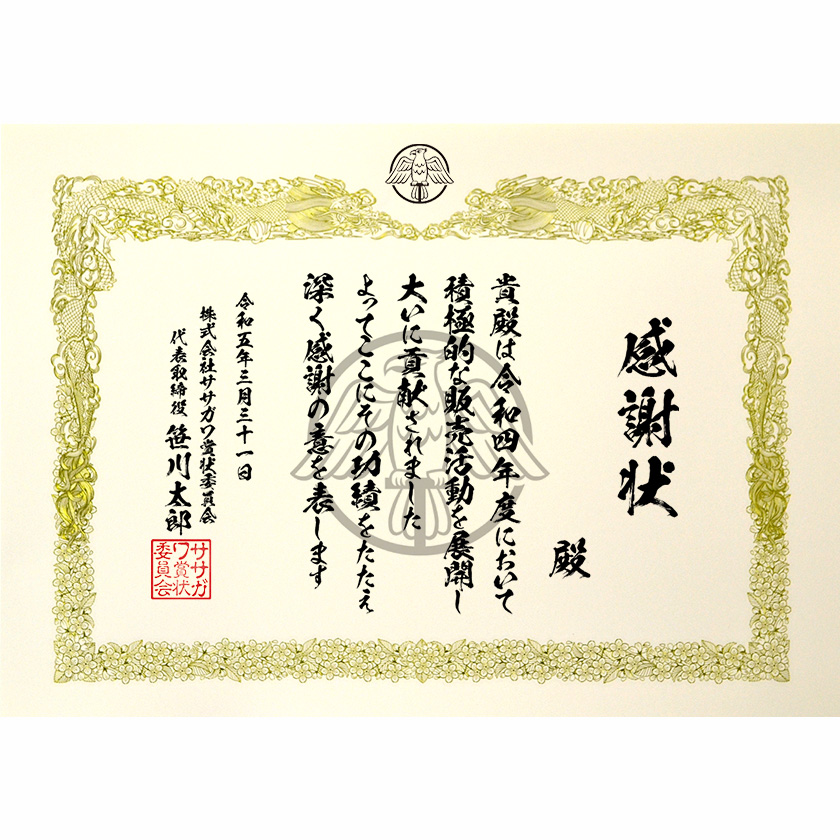 感謝状
殿
貴殿は令和四年度において
積極的な販売活動を展開し
大いに貢献されました
よってここにその功績をたたえ
深く感謝の意を表します
令和五年三月三十一日
株式会社ササガワ賞状委員会
代表取締役 笹川太郎
ササガ
ワ賞状
委員会